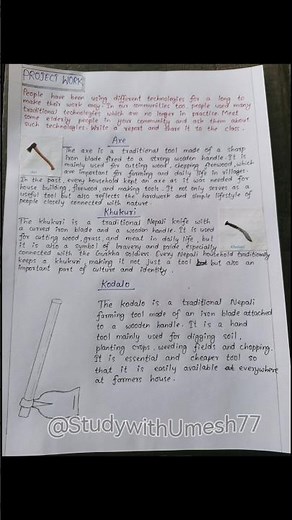 PROJECT WORK
People have been using different technologies for a long to
make their work easy. In our communities too people used many
traditional technologies which are no longer in practise Meet
some elderly people in your community and ask them about
such technologies. Write a report and share it to the class.
Axe
The axe is a traditional tool made of a sharp
iron blade fixed to a strong wooden handle. It is
mainly used for cutting wood, chopping firewood, which
are important for farming and daily life in villages.
In the past, every household kept an axe as it was needed for
house building, firewood, and making tools. It not only serves as a
useful tool but also reflects the hardwork and simple lifestyle of
people closely connected with nature.
Khukuri
The khukuri is a traditional Nepali knife with
a curved iron blade and a wooden handle. It is used
for cutting wood, grass, and meat in daily life, but
it is also a symbol of bravery and pride especially
connected with the Gurkha soldiers. Every Nepali household traditionally
keeps a khukuri, making it not just a tool but also an
important part of culture and identity.
Kodalo
The kodalo is a traditional Nepali
farming tool made of an iron blade attached
to a wooden handle. It is a hand
tool mainly used for digging soil,
planting crops, weeding fields and chopping.
It is essential and cheaper tool so
that it is easily available at everywhere
at farmers house.
@StudywithUmesh77